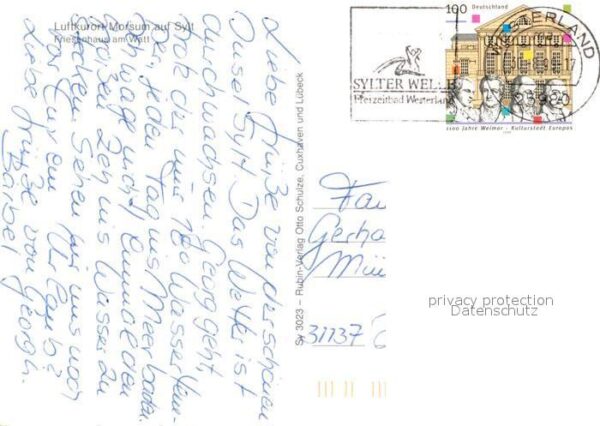 Luftkurort Morsum auf Sylt
Friesenhaus am Watt
Liebe Grüße von der schönen
Insel Sylt. Das Wetter ist
durchwachsen. Georg geht,
trotz der nur 18° Wassertem-
jeden Tag ins Meer baden.
den
großen Zeh ins Wasser zu
stecken. Sehen wir uns noch
vor Eurem Urlaub?
Liebe Grüße von Georg u.
Bärbel
Sy 3023 – Rubin-Verlag Otto Schulze, Cuxhaven und Lübeck
100 Deutschland
1100 Jahre Weimar - Kulturstadt Europas
WESTERLAND
SYLTER WELLE
Freizeitbad Westerland
Fam
Gerha
31137
privacy protection
Datenschutz